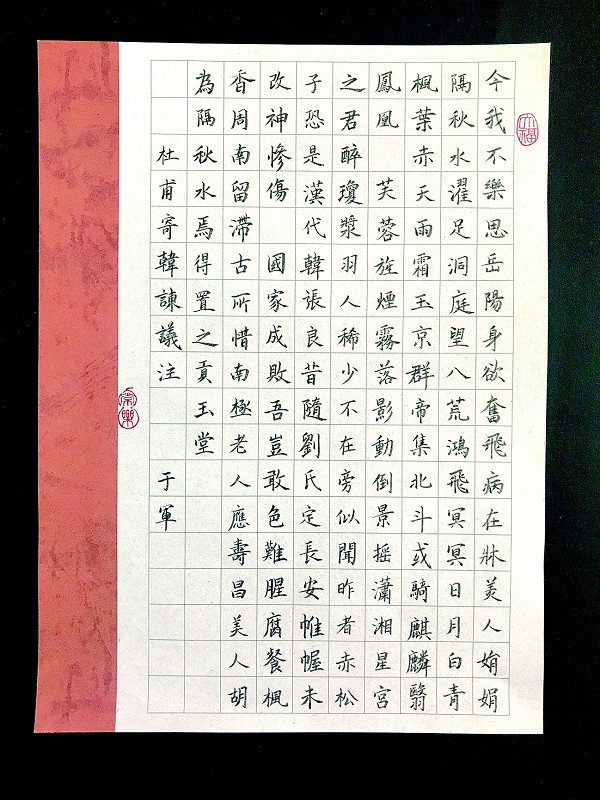 今我不樂思岳陽身欲奮飛病在牀美人娟娟
隔秋水濯足洞庭望八荒鴻飛冥冥日月白青
楓葉赤天雨霜玉京群帝集北斗或騎麒麟翳
鳳凰 芙蓉旌煙霧落影動倒景摇瀟湘星宮
之君醉瓊漿羽人稀少不在旁似聞昨者赤松
子恐是漢代韓張良昔隨劉氏定長安帷幄未
改神慘傷 國家成敗吾豈敢色難腥腐餐楓
香周南留滯古所惜南極老人應壽昌美人胡
為隔秋水焉得置之貢玉堂
杜甫寄韓諫議注 于軍